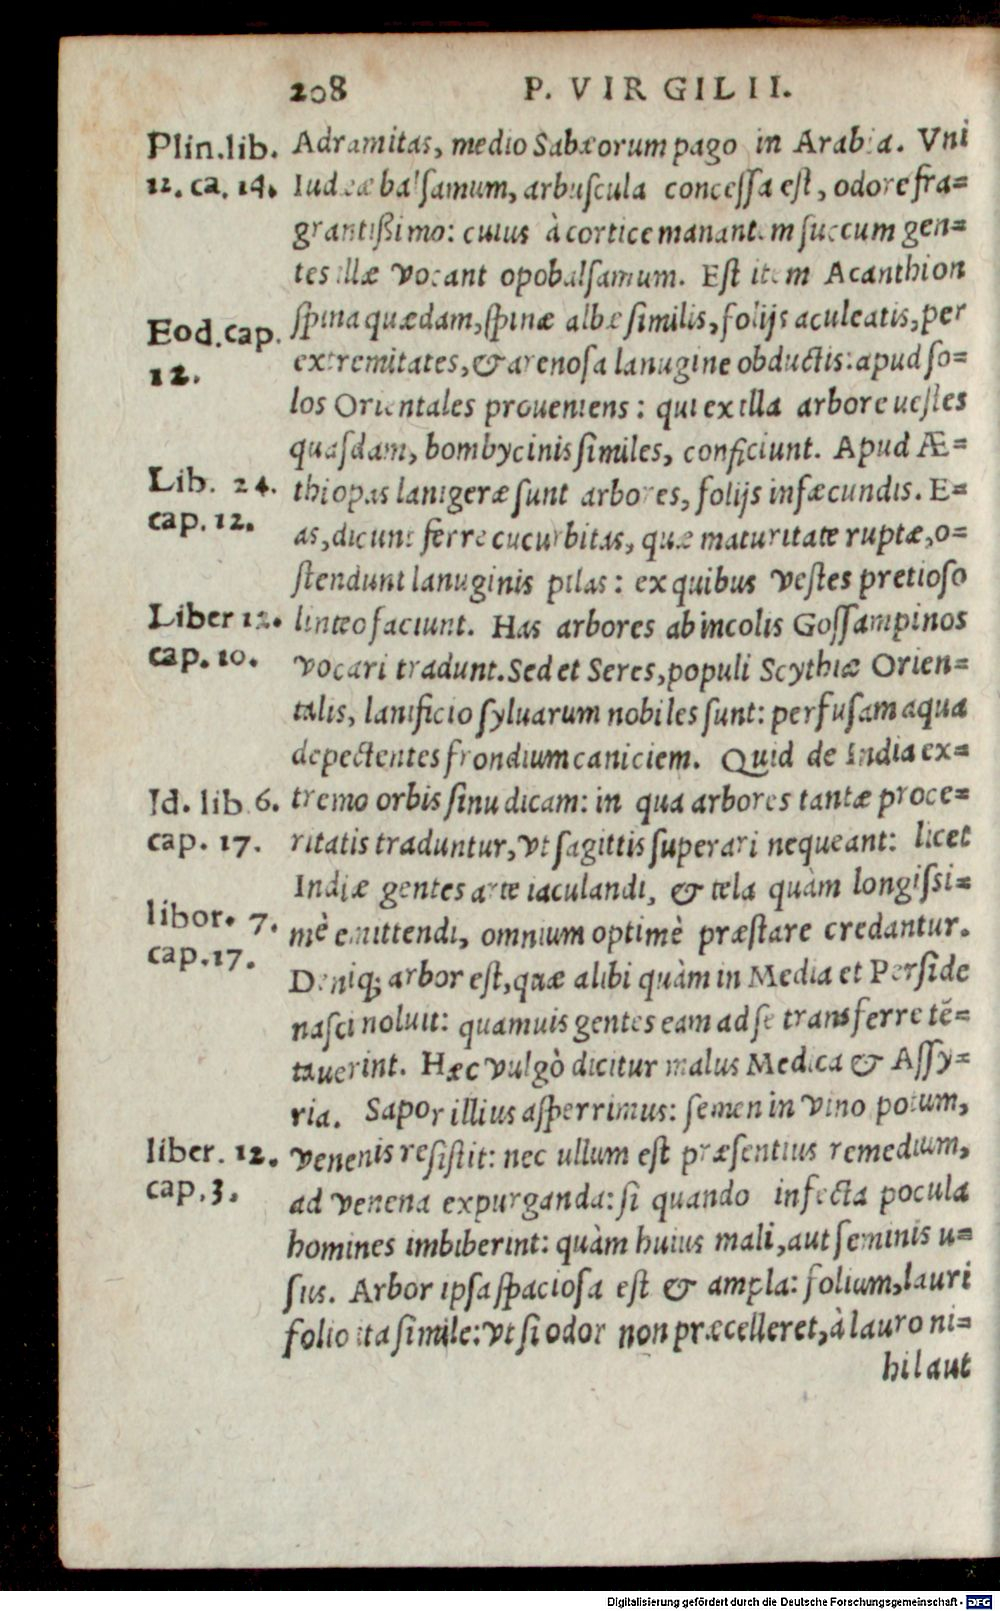 208 P. VIRGILII.
Plin.lib.
12. ca. 14.
Eod.cap.
12.
Lib. 24.
cap. 12.
Liber 12.
cap. 10.
Id. lib 6.
cap. 17.
libor. 7.
cap.17.
liber. 12.
cap.3.
Adramitas, medio Sabæorum pago in Arabia. Vni
Iudææ balſamum, arbuſcula conceſſa eſt, odore fra=
grantißimo: cuius à cortice manantem ſuccum gen=
tes illæ vocant opobalſamum. Eſt item Acanthion
ſpina quædam, ſpinæ albæ ſimilis, folijs aculeatis, per
extremitates, & arenoſa lanugine obductis: apud ſo=
los Orientales proueniens: qui ex illa arbore ueſtes
quaſdam, bombycinis ſimiles, conficiunt. Apud Æ=
thiopas lanigeræ ſunt arbores, folijs infæcundis. E=
as, dicunt ferre cucurbitas, quæ maturitate ruptæ, o=
ſtendunt lanuginis pilas: ex quibus veſtes pretioſo
linteo faciunt. Has arbores ab incolis Goſſampinos
vocari tradunt. Sed et Seres, populi Scythiæ Orien=
talis, lanificio ſyluarum nobiles ſunt: perfuſam aqua
depectentes frondium caniciem. Quid de India ex=
tremo orbis ſinu dicam: in qua arbores tantæ proce=
ritatis traduntur, vt ſagittis ſuperari nequeant: licet
Indiæ gentes arte iaculandi, & tela quàm longiſsi=
mè emittendi, omnium optimè præſtare credantur.
Deniq; arbor eſt, quæ alibi quàm in Media et Perſide
naſci noluit: quamuis gentes eam ad ſe transferre tē=
tauerint. Hæc vulgò dicitur malus Medica & Aſſy=
ria. Sapor illius aſperrimus: ſemen in vino potum,
venenis reſiſtit: nec ullum eſt præſentius remedium,
ad venena expurganda: ſi quando infecta pocula
homines imbiberint: quàm huius mali, aut ſeminis u=
ſus. Arbor ipſa ſpacioſa eſt & ampla: folium, lauri
folio ita ſimile: vt ſi odor non præcelleret, à lauro ni=
hil aut
Digitalisierung gefördert durch die Deutsche Forschungsgemeinschaft - DFG